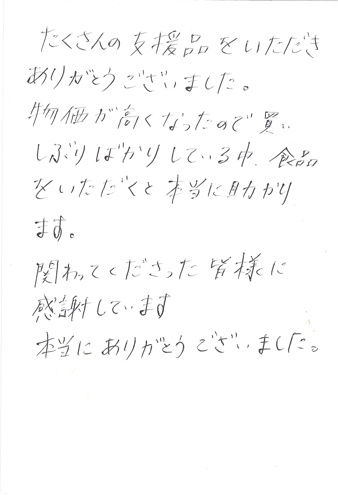 たくさんの支援品をいただき
ありがとうございました。
物価が高くなったので買い
しぶりばかりしている中、食品
をいただくと本当に助かり
ます。
関わってくださった皆様に
感謝しています
本当にありがとうございました。